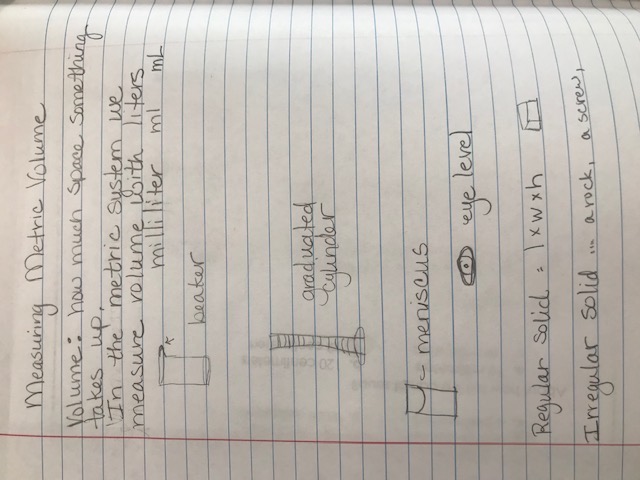 Measuring Metric Volume
Volume: how much space something
takes up.
In the metric system we
measure volume with liters
milliliter ml mL
beater
graduated
cylinder
= meniscus
eye level
Regular Solid = l x w x h
Irregular solid ... a rock, a screw,